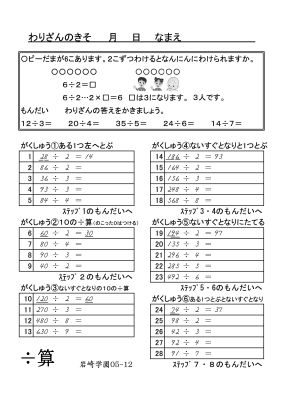 わりざんのきそ　月　日　なまえ
○ビーだまが6こあります。2こずつわけるとなんにんにわけられますか。
○○○○○○　○○○○○○
6÷2＝□
6÷2…2×□＝6　□は3になります。 3人です。
もんだい　わりざんの答えをかきましょう。
12÷3＝　20÷4＝　35÷5＝　24÷6＝　14÷7＝
がくしゅう①ある1つ左へとぶ
1 28 ÷ 2 ＝ 14
2 86 ÷ 2 ＝
3 36 ÷ 3 ＝
4 93 ÷ 3 ＝
5 84 ÷ 4 ＝
ｽﾃｯﾌﾟ1のもんだいへ
がくしゅう②10の÷算(のこった0はつける)
6 60 ÷ 2 ＝ 30
7 80 ÷ 4 ＝
8 90 ÷ 3 ＝
9 40 ÷ 2 ＝
ｽﾃｯﾌﾟ 2のもんだいへ
がくしゅう③ないすぐとなりの10の÷算
10 120 ÷ 2 ＝ 60
11 270 ÷ 3 ＝
12 480 ÷ 8 ＝
13 630 ÷ 9 ＝
÷算
岩崎学園05-12
がくしゅう④ないすぐとなりと1つとぶ
14 186 ÷ 2 ＝ 93
15 164 ÷ 2 ＝
16 156 ÷ 3 ＝
17 248 ÷ 4 ＝
18 568 ÷ 8 ＝
ｽﾃｯﾌﾟ3・4のもんだいへ
がくしゅう⑤ないすぐとなりにたてる
19 194 ÷ 2 ＝ 97
20 135 ÷ 3 ＝
21 296 ÷ 4 ＝
22 285 ÷ 5 ＝
23 492 ÷ 6 ＝
ｽﾃｯﾌﾟ5・6のもんだいへ
がくしゅう⑥ある1つとぶとないすぐとなり
24 74 ÷ 2 ＝ 37
25 98 ÷ 2 ＝
26 42 ÷ 3 ＝
27 92 ÷ 4 ＝
28 91 ÷ 7 ＝
ｽﾃｯﾌﾟ7・8のもんだいへ